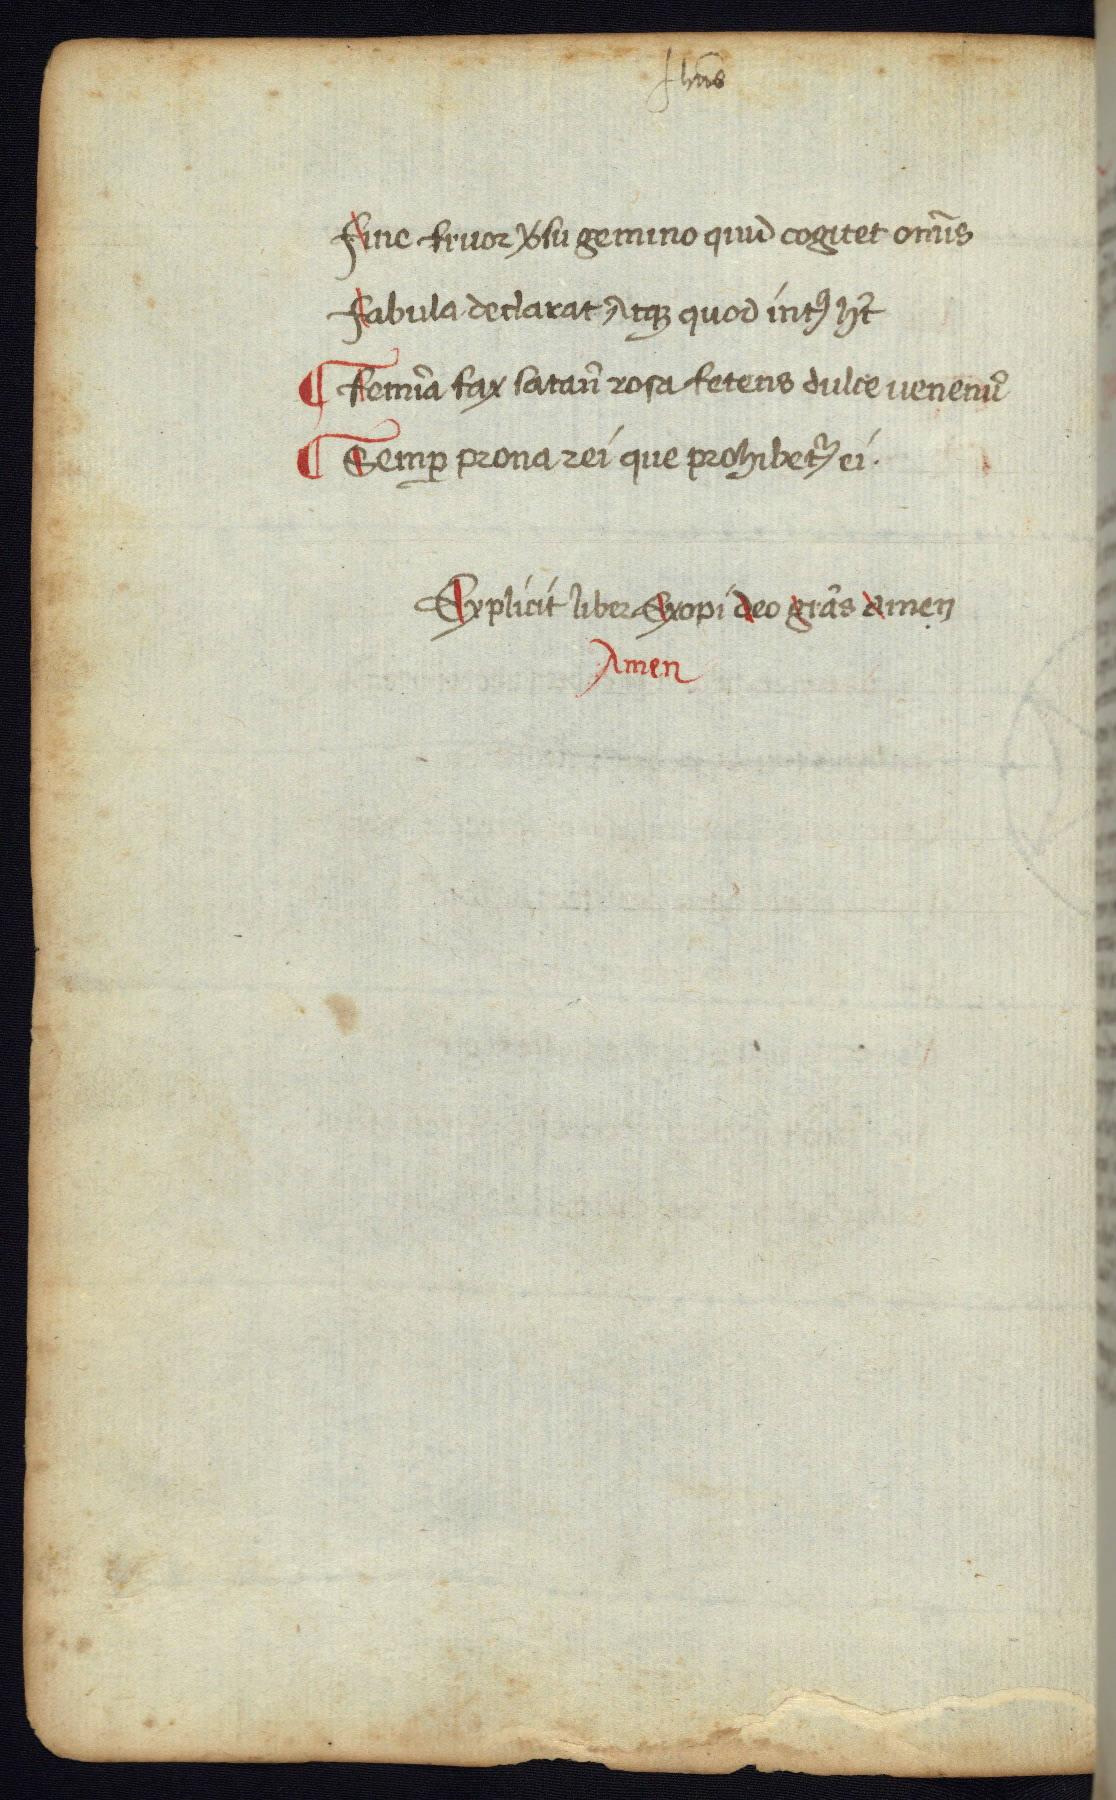 Jhūs
Fine fruor ꝟsu gemino quid cogitet om̄is
Fabula declarat Atqꝫ quod íntꝰ hꝫt
¶ Femīa fax satan̄ rosa fetens dulce uenenū
¶ Semꝑ prona rei que prohibetᷣ ei.
Explicit liber Exopi deo grās amen
Amen